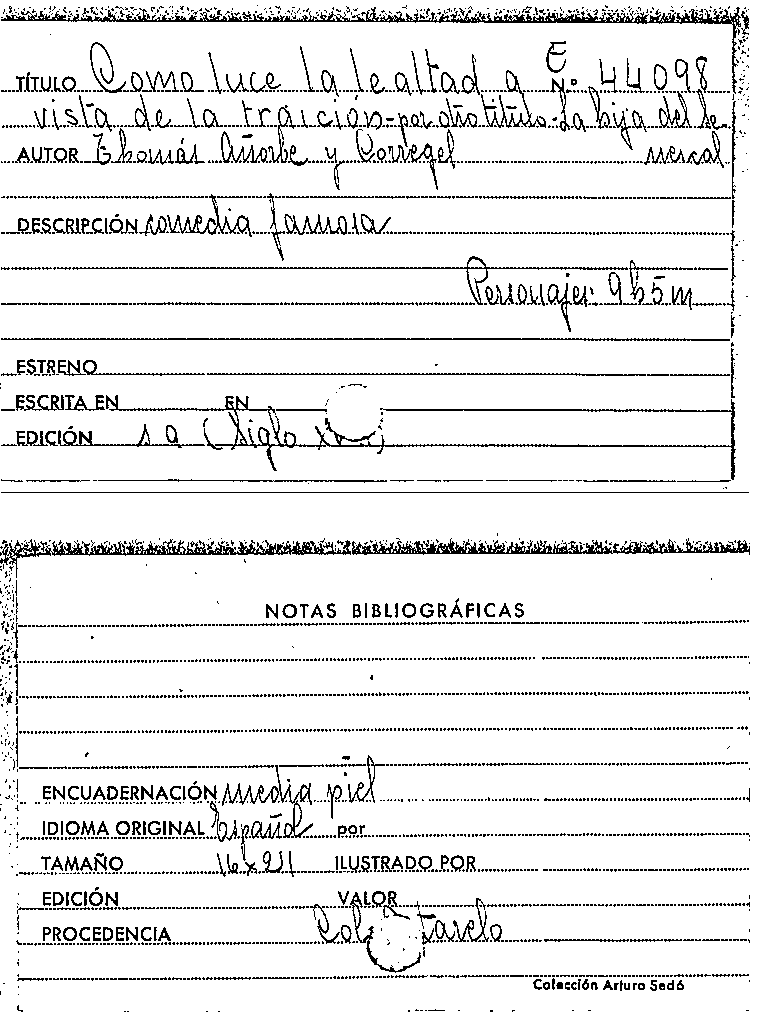 TÍTULO Como luce la lealtad a E Nº 44098
vista de la traición-por otro título-La hija del Se-
AUTOR Thomás Añorbe y Corregel nescal
DESCRIPCIÓN comedia famosa
Personajes: 9h5m
ESTRENO
ESCRITA EN EN
EDICIÓN s a (Siglo
NOTAS BIBLIOGRÁFICAS
ENCUADERNACIÓN media piel
IDIOMA ORIGINAL Español por
TAMAÑO 16x21 ILUSTRADO POR
EDICIÓN VALOR
PROCEDENCIA Col
Colección Arturo Sedó